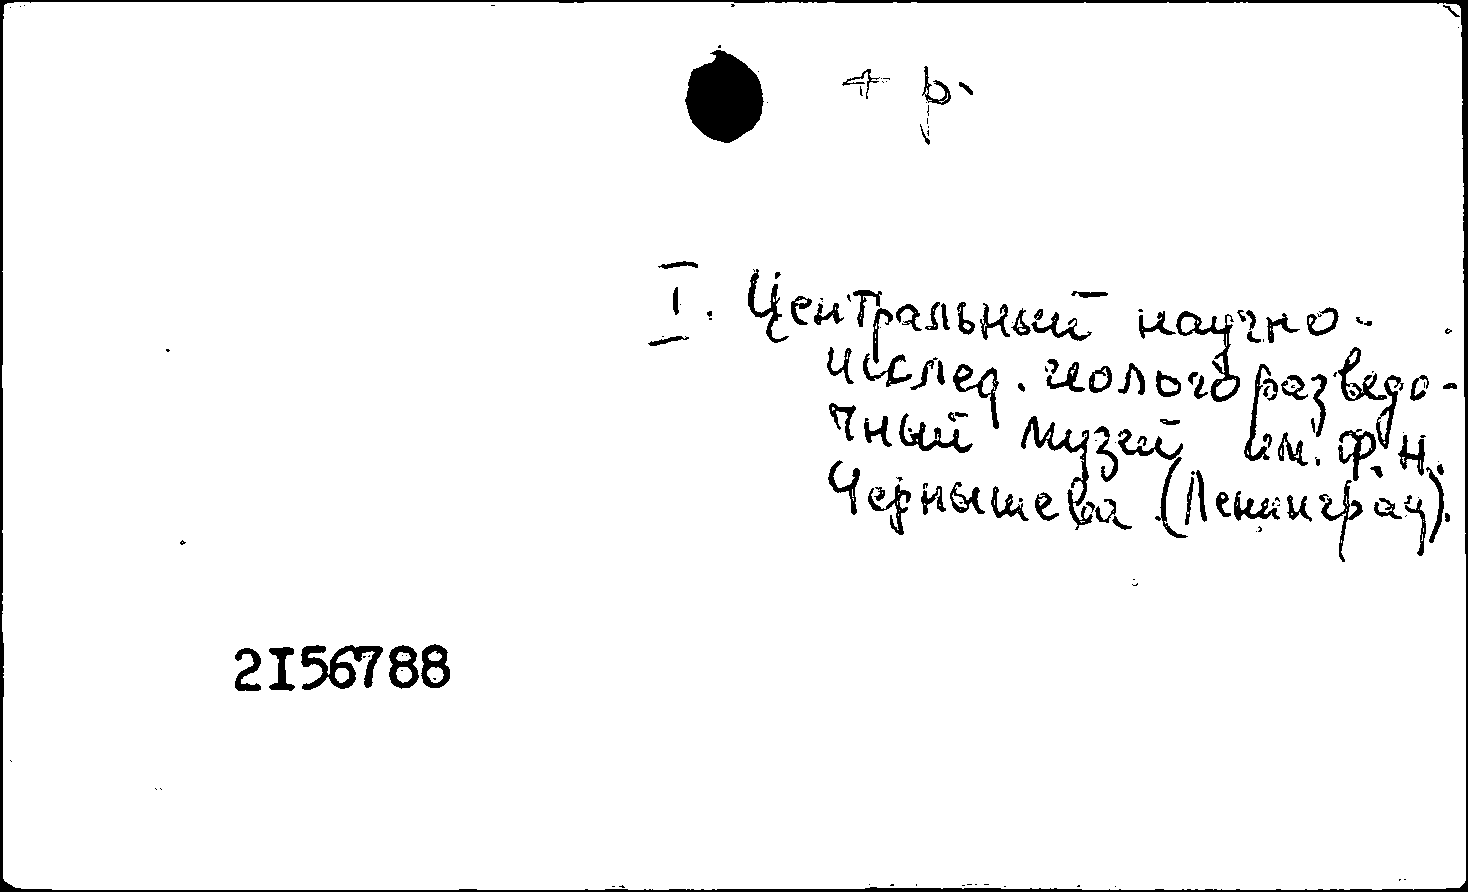 + р.
I. Центральный научно-
исслед. геологоразведо-
чный музей им. Ф.Н.
Чернышева (Ленинград).
2I56788